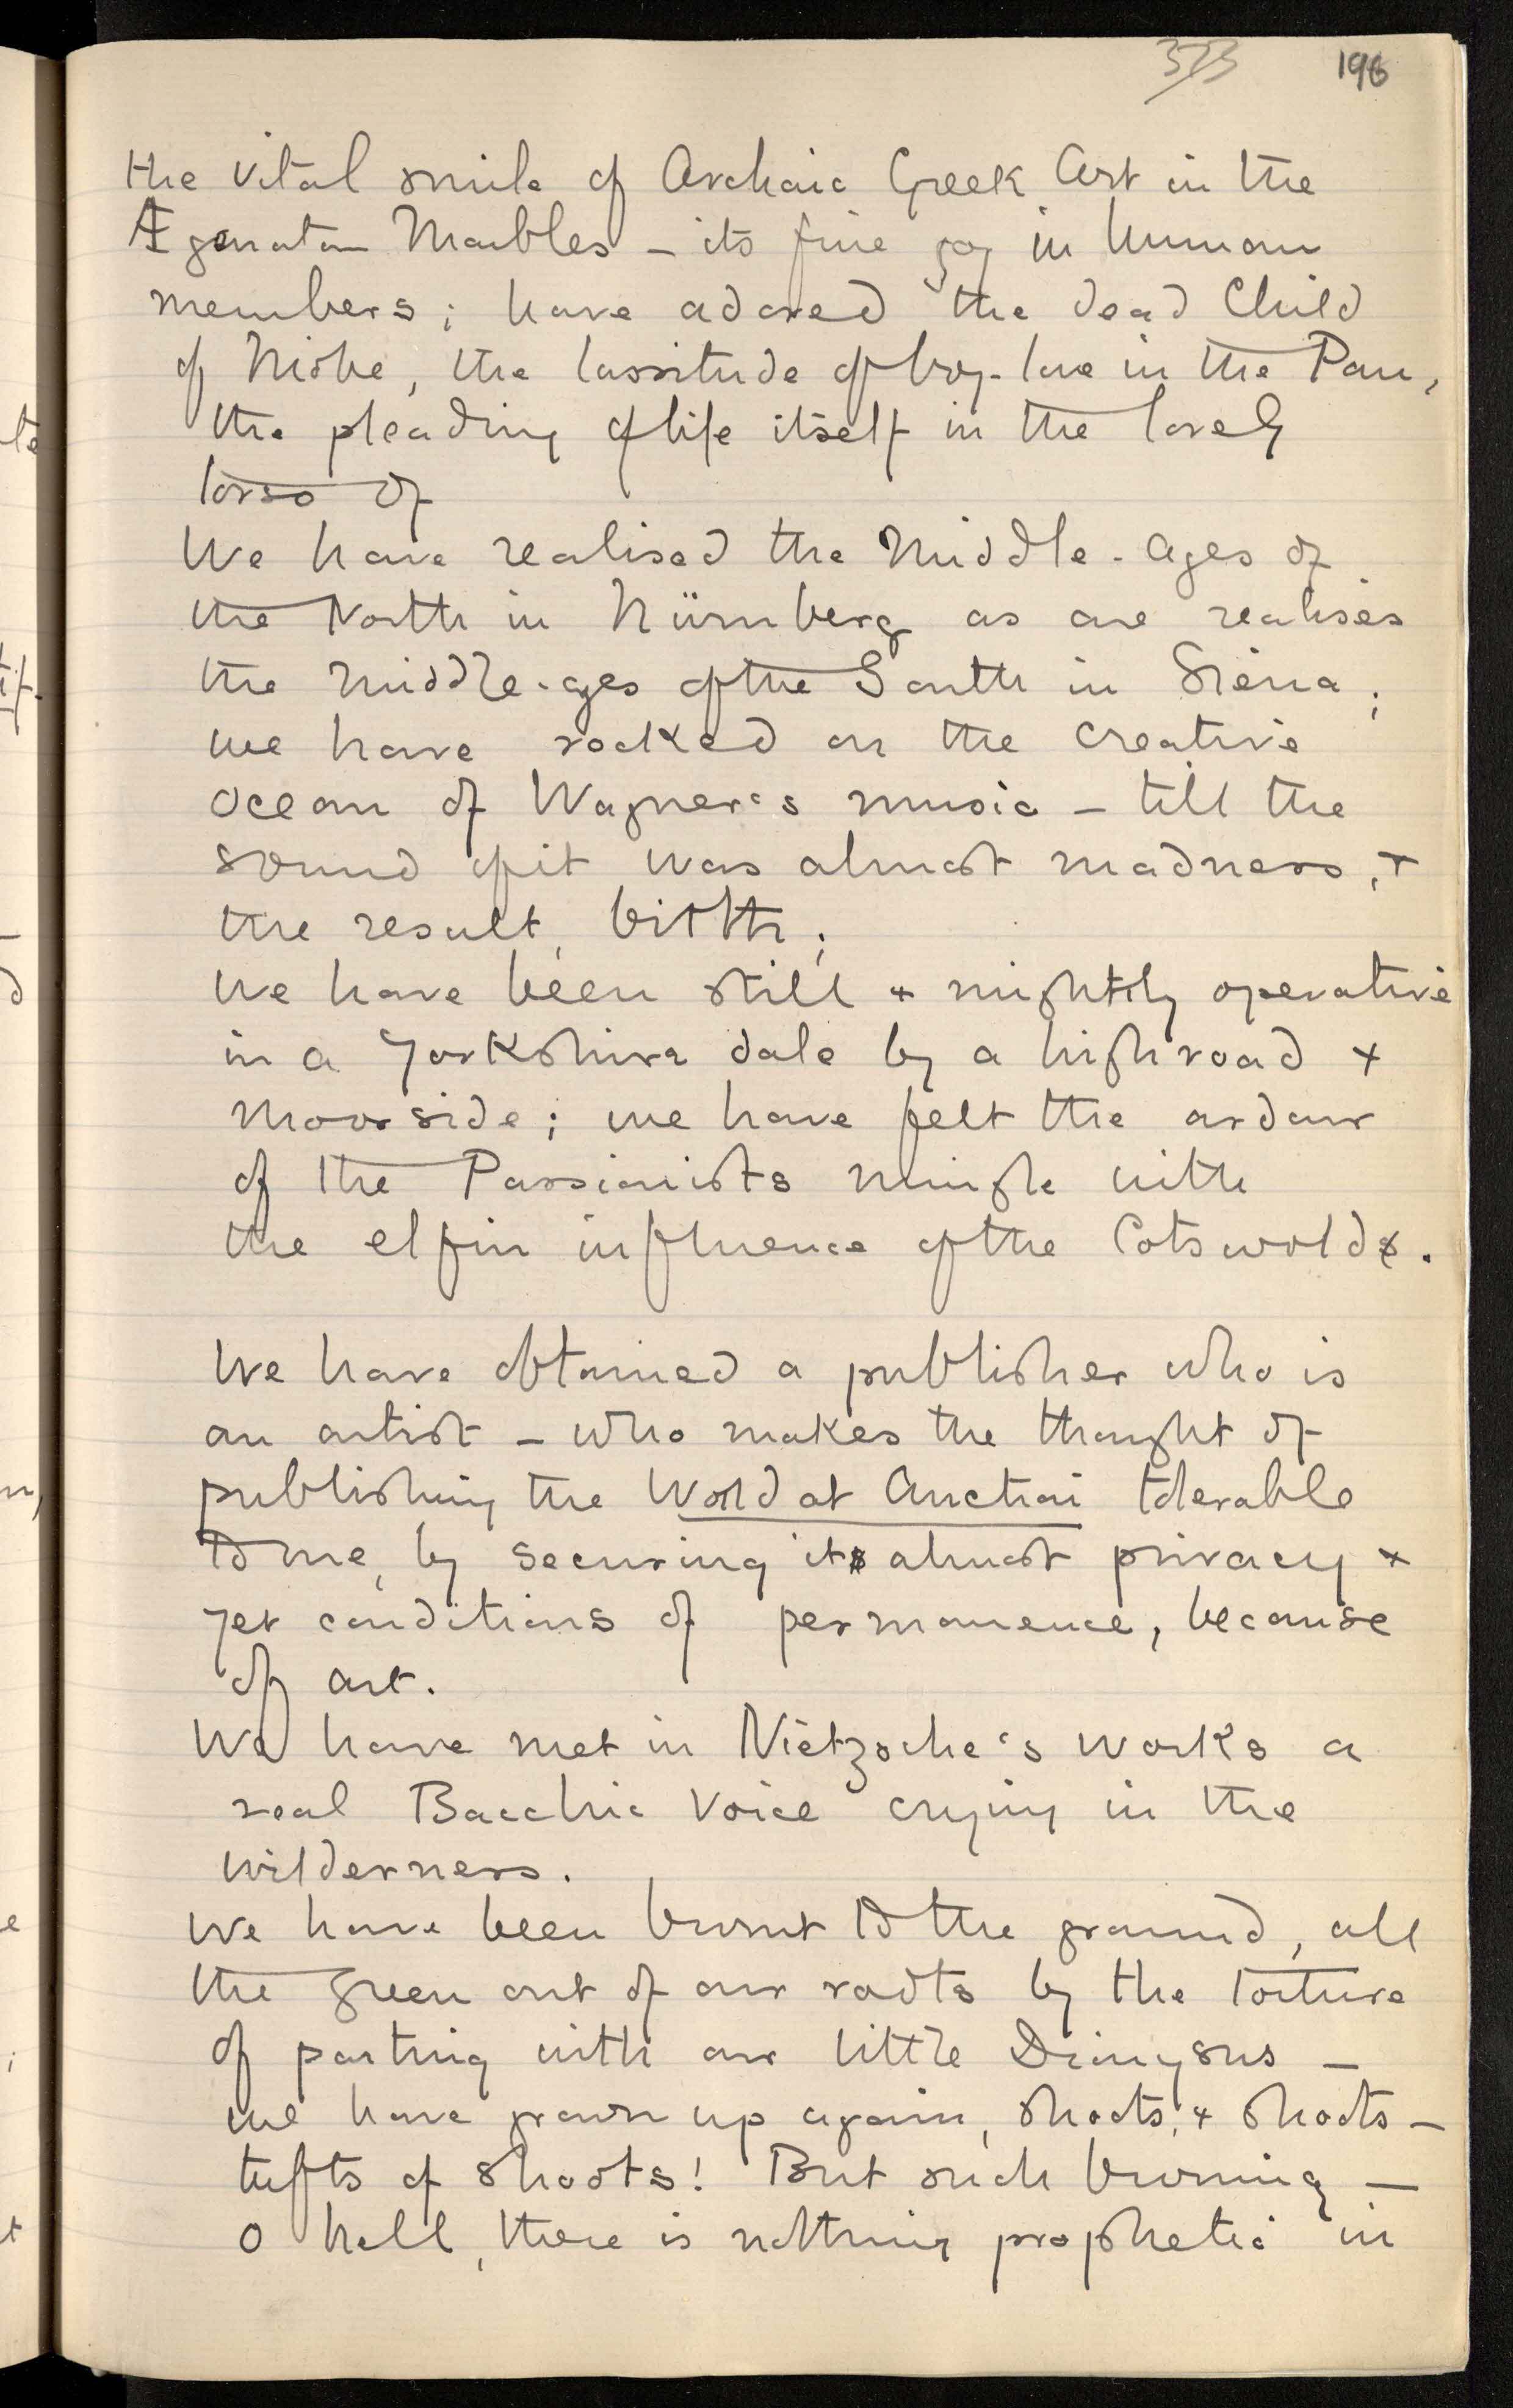 373 196
the vital smile of Archaic Greek Art in the
Æginatan Marbles – its fine joy in human
members; have adored the dead Child
of Niobe, the lassitude of boy-love in the Pan,
the pleading of life itself in the lovely
torso of
We have realised the Middle-Ages of
the North in Nürnberg as one realises
the Middle-ages of the South in Siena;
we have rocked on the creative
ocean of Wagner's music – till the
sound of it was almost madness, +
the result, birth;
We have been still + mightily operative
in a Yorkshire dale by a highroad +
Moorside; we have felt the ardour
of the Passionists mingle with
the elfin influence of the Cotswolds.
We have obtained a publisher who is
an artist – who makes the thought of
publishing the World at Auction tolerable
to me, by securing its almost privacy +
yet conditions of permanence, because
of art.
We have met in Nietzsche's works a
real Bacchic Voice crying in the
wilderness.
We have been burnt to the ground, all
the green out of our roots by the torture
of parting with our little Dionysus –
we have grown up again, shoots, + shoots –
tufts of shoots! But such burning –
O hell, there is nothing prophetic in